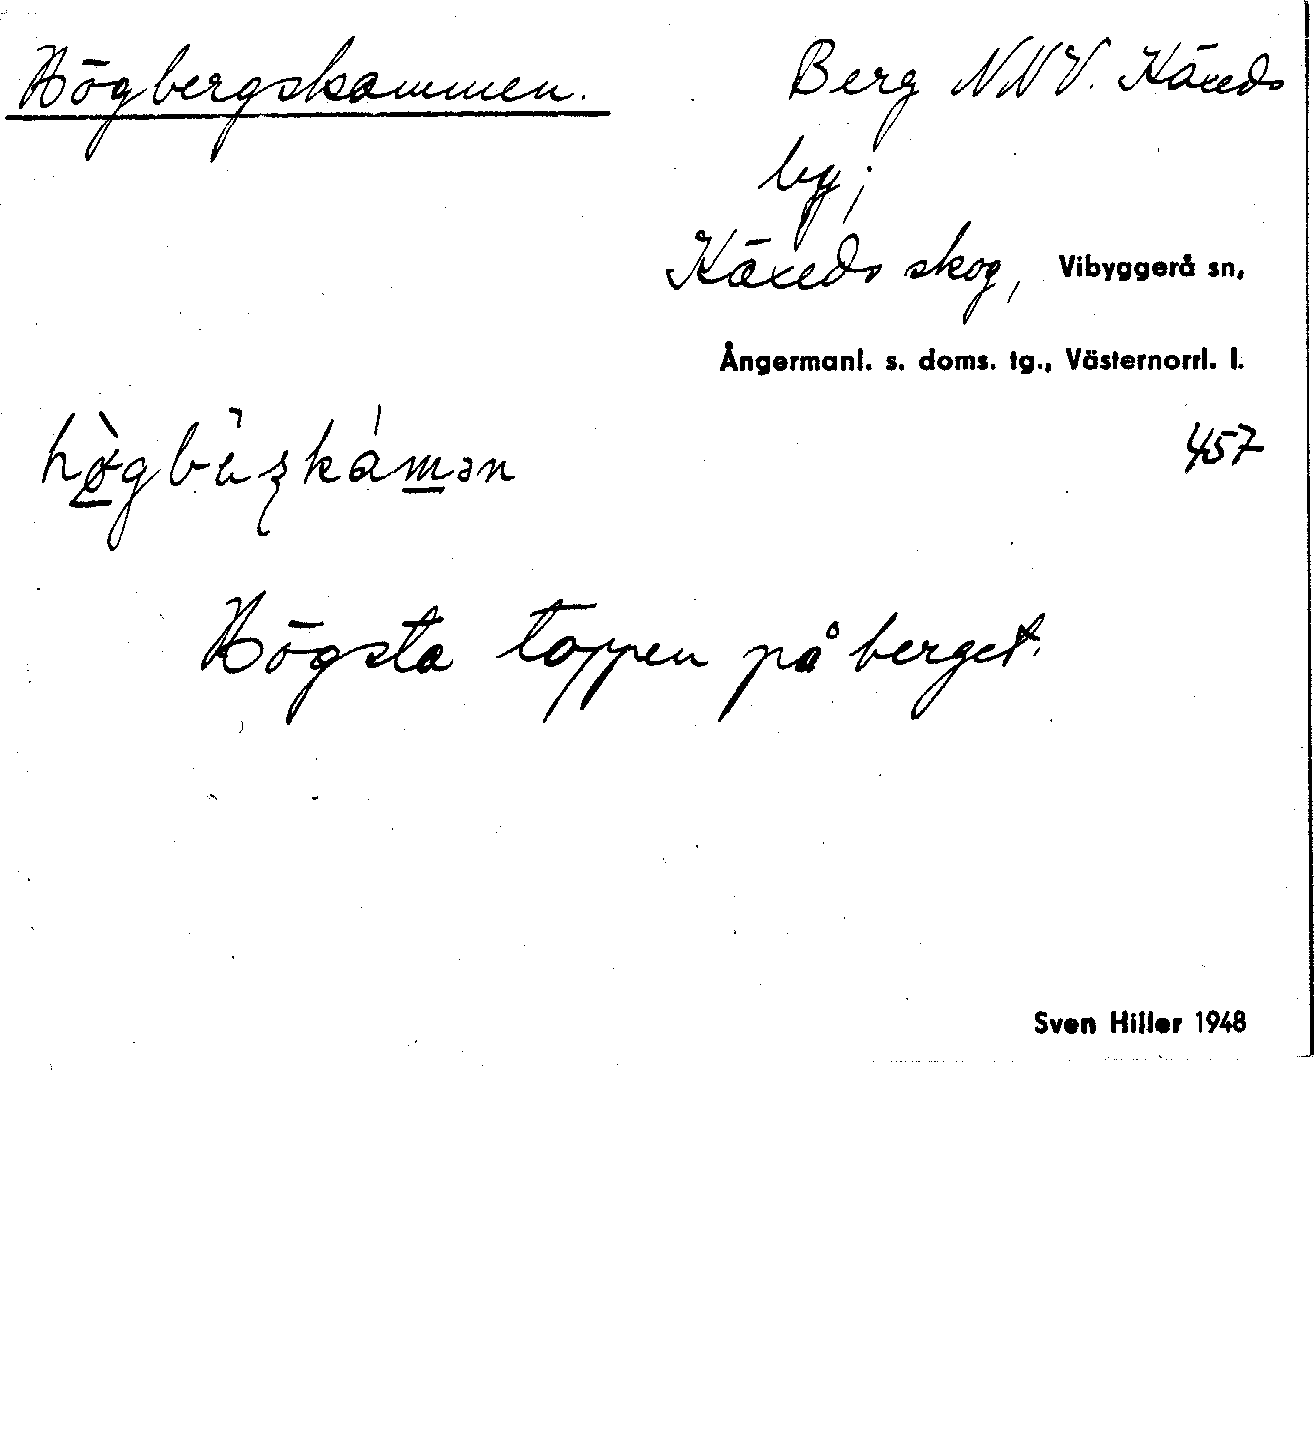 Högbergskammen. Berg NNV. Käxeds
by;
Käxeds skog, Vibyggerå sn,
Ångermanl. s. doms. tg., Västernorrl. l.
457
Högsta toppen på berget.
Sven Hiller 1948